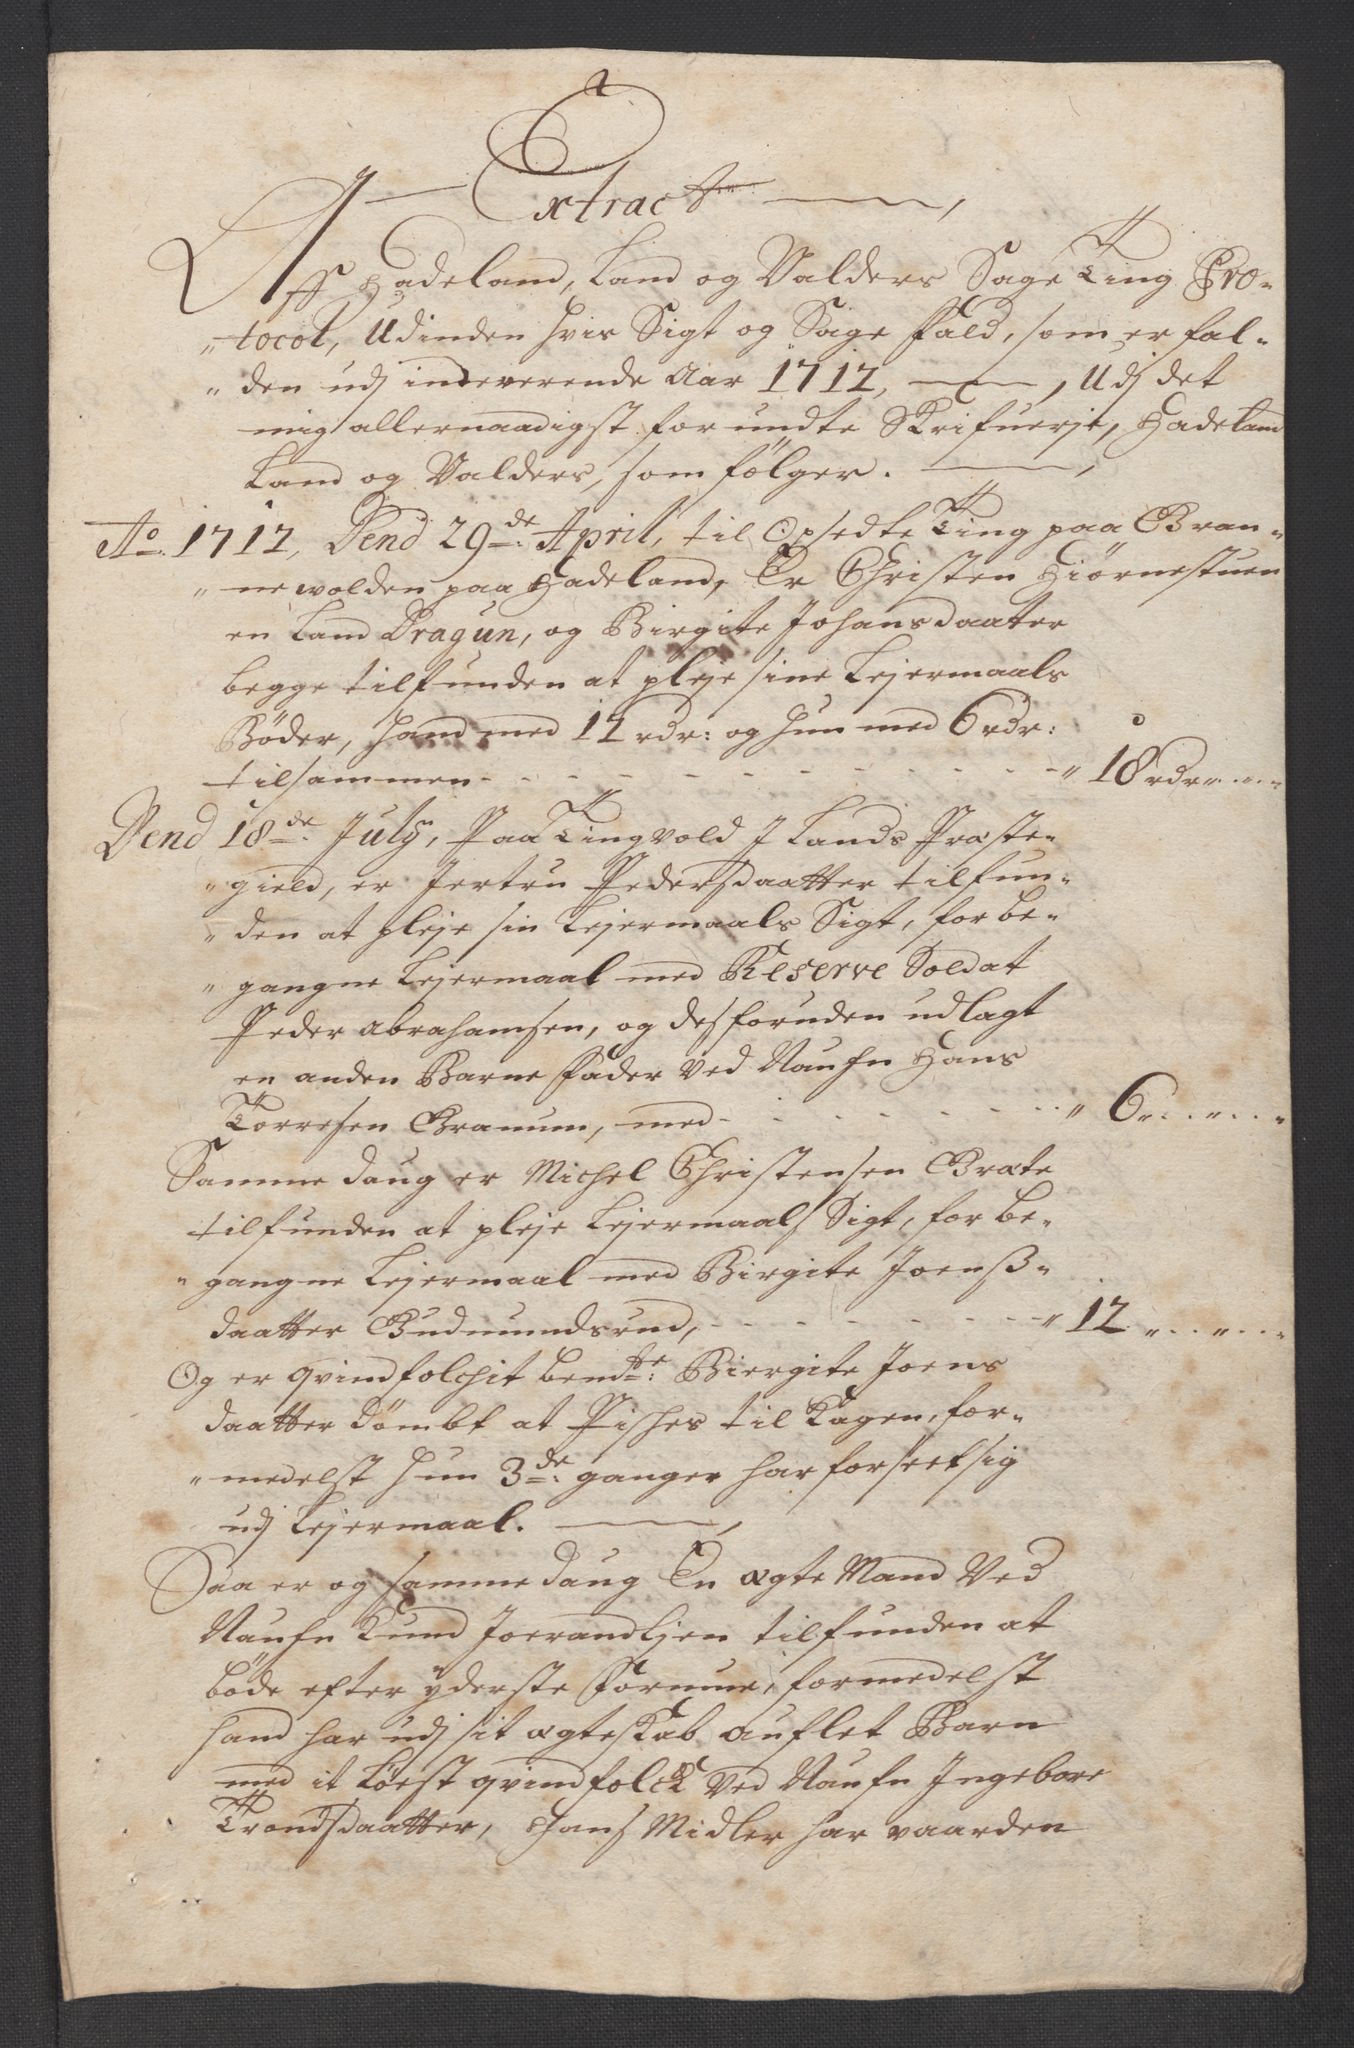 Extract
Aff Hadeland, Land og Valders Sage Ting Pro-
"tocol, Udinden hvis Sigt og Sage fald, som er fal-
"den udj indeverende Aar 1712, Udj det
mig allernaadigst forundte Skrifuerje, Hadeland
Land og Valders, som fölger.
Ao. 1712, Dend 29de: April, til Opsedte Ting paa Bran-
"newolden paa Hadeland, Er Christen Hiörnestuen
en Land Dragun, og Birgite Johansdaatter
begge tilfunden at pleje sine Lejermaals
Böder, hand med 12 rdr: og hun med 6 rdr:
tilsammen - - - " 18 rdr " "
Dend 18de: July, Paa Tingvold J Lands Præste-
"gield, er Jertru Pedersdaatter tilfun-
"den at pleje sin Lejermaals Sigt, for be-
"gangne Lejermaal med Reserve Soldat
Peder Abrahamsen, og desforuden udlagt
en anden Barne fader Ved Naufn Hans
Torresen Granum, med - - - " 6 " "
Samme daug er Michel Christensen Bræte
tilfunden at pleje Lejermaals Sigt, for be-
"gangne Lejermaal med Birgite Joenß-
daatter Gudmundsrud, - - - " 12 " "
Og er qvindfolchit bemte: Biergite Joens
daatter dömbt at Pisches til Kagen, for-
"medelst hun 3de: ganger har forseet sig
udj Lejermaal.
Saa er og samme daug En ægte Mand Ved
Naufn Knud Joerandljen tilfunden at
böde efter yderste formue, formedelst
hand har udj sit ægteskab auflet Barn
med it Löest qvindfolck Ved Naufn Ingebore
Trondsdaatter, Hans Midler har vaarden